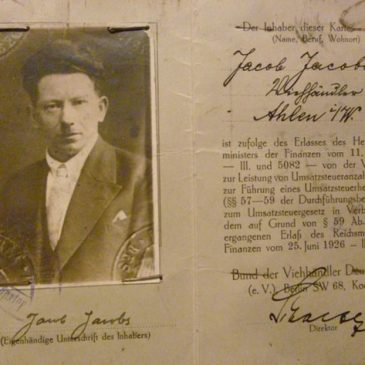 Jacob Jacobs
(Eigenhändige Unterschrift des Inhabers)
Der Inhaber dieser Karte
(Name, Beruf, Wohnort)
Jacob Jacob
Viehhändler
Ahlen i/W.
ist zufolge des Erlasses des He
ministers der Finanzen vom 11.
— III. und 5082 — von der V
zur Leistung von Umsatzsteueranzahl
zur Führung eines Umsatzsteuerhe
(§§ 57—59 der Durchführungsbe
zum Umsatzsteuergesetz in Verb
dem auf Grund von § 59 Ab
ergangenen Erlaß des Reichsm
Finanzen vom 25. Juni 1926 — I
Bund der Viehhändler Deu
(e. V.) Berlin SW 68, Koc
Direktor